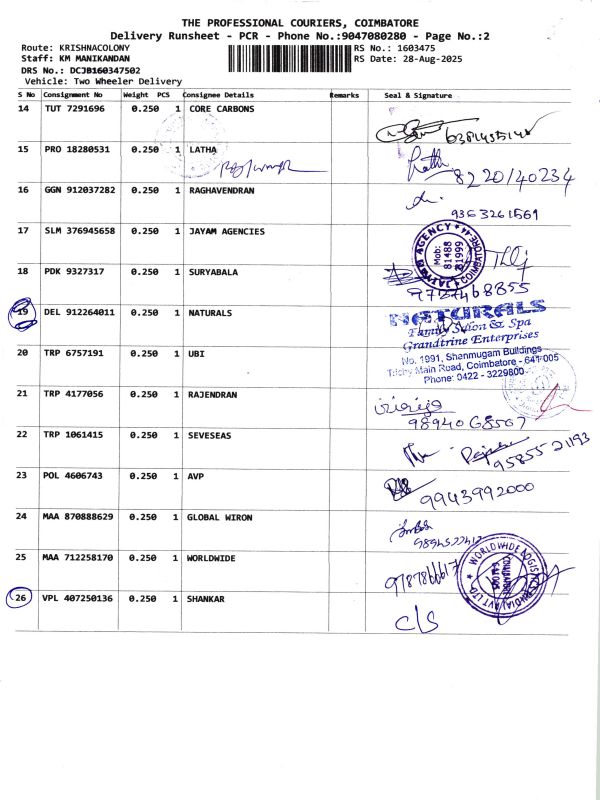 THE PROFESSIONAL COURIERS, COIMBATORE
Delivery Runsheet - PCR - Phone No.:9047080280 - Page No.:2
Route: KRISHNACOLONY RS No.: 1603475
Staff: KM MANIKANDAN RS Date: 28-Aug-2025
DRS No.: DCJB160347502
Vehicle: Two Wheeler Delivery
S No Consignment No Weight PCS Consignee Details Remarks Seal & Signature
14 TUT 7291696 0.250 1 CORE CARBONS
15 PRO 18280531 0.250 1 LATHA
8220140234
16 GGN 912037282 0.250 1 RAGHAVENDRAN
9363261569
17 SLM 376945658 0.250 1 JAYAM AGENCIES
JAYAM AGENCY COIMBATORE-44
Mob: 81488 81999
18 PDK 9327317 0.250 1 SURYABALA
19 DEL 912264011 0.250 1 NATURALS
NATURALS
Family Salon & Spa
Grandtrine Enterprises
No. 1991, Shanmugam Buildings
Trichy Main Road, Coimbatore - 641 005
Phone: 0422 - 3229800
20 TRP 6757191 0.250 1 UBI
21 TRP 4177056 0.250 1 RAJENDRAN
9894068507
22 TRP 1061415 0.250 1 SEVESEAS
9585521193
23 POL 4606743 0.250 1 AVP
9943992000
24 MAA 870888629 0.250 1 GLOBAL WIRON
25 MAA 712258170 0.250 1 WORLDWIDE
26 VPL 407250136 0.250 1 SHANKAR
C/S